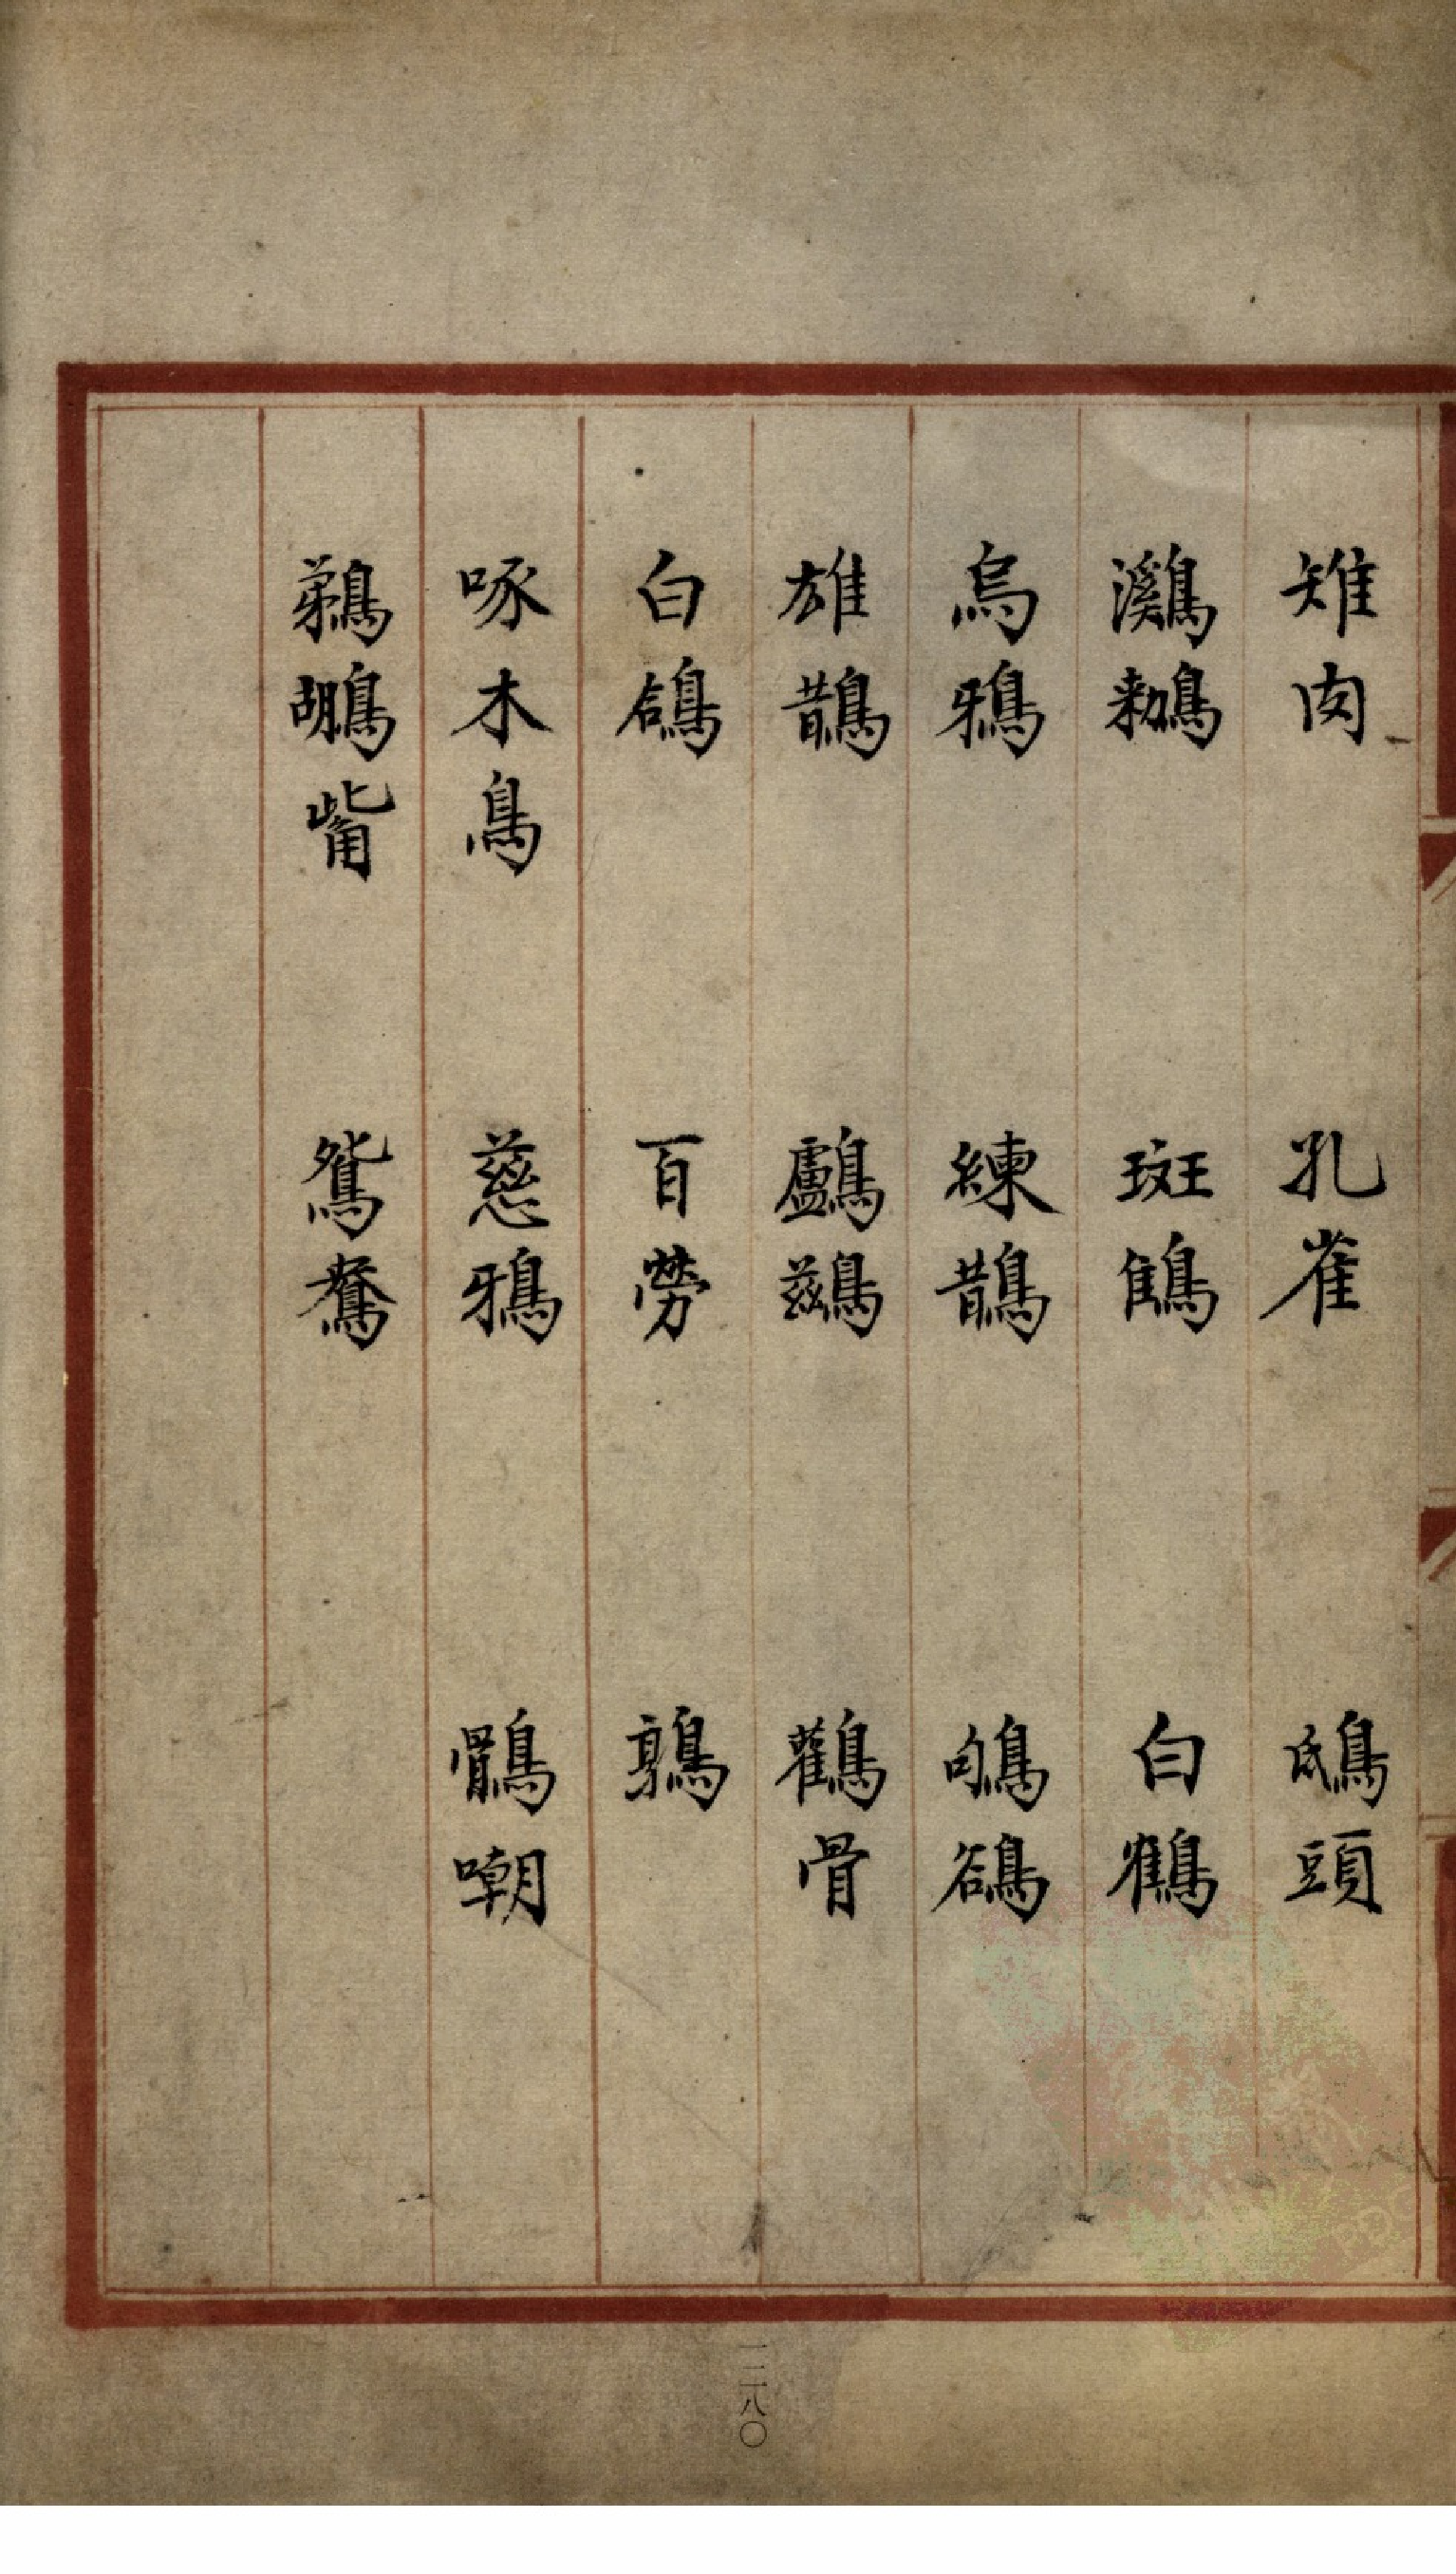 雉肉　孔雀　鴟頭
鸂鷘　斑鵻　白鶴
烏鴉　練鵲　鴝鵒
雄鵲　鸕鷀　鸛骨
白鴿　百勞　鶉
啄木鳥　慈鴉　鶻嘲
鵜鶘觜　鴛鴦
一二八〇